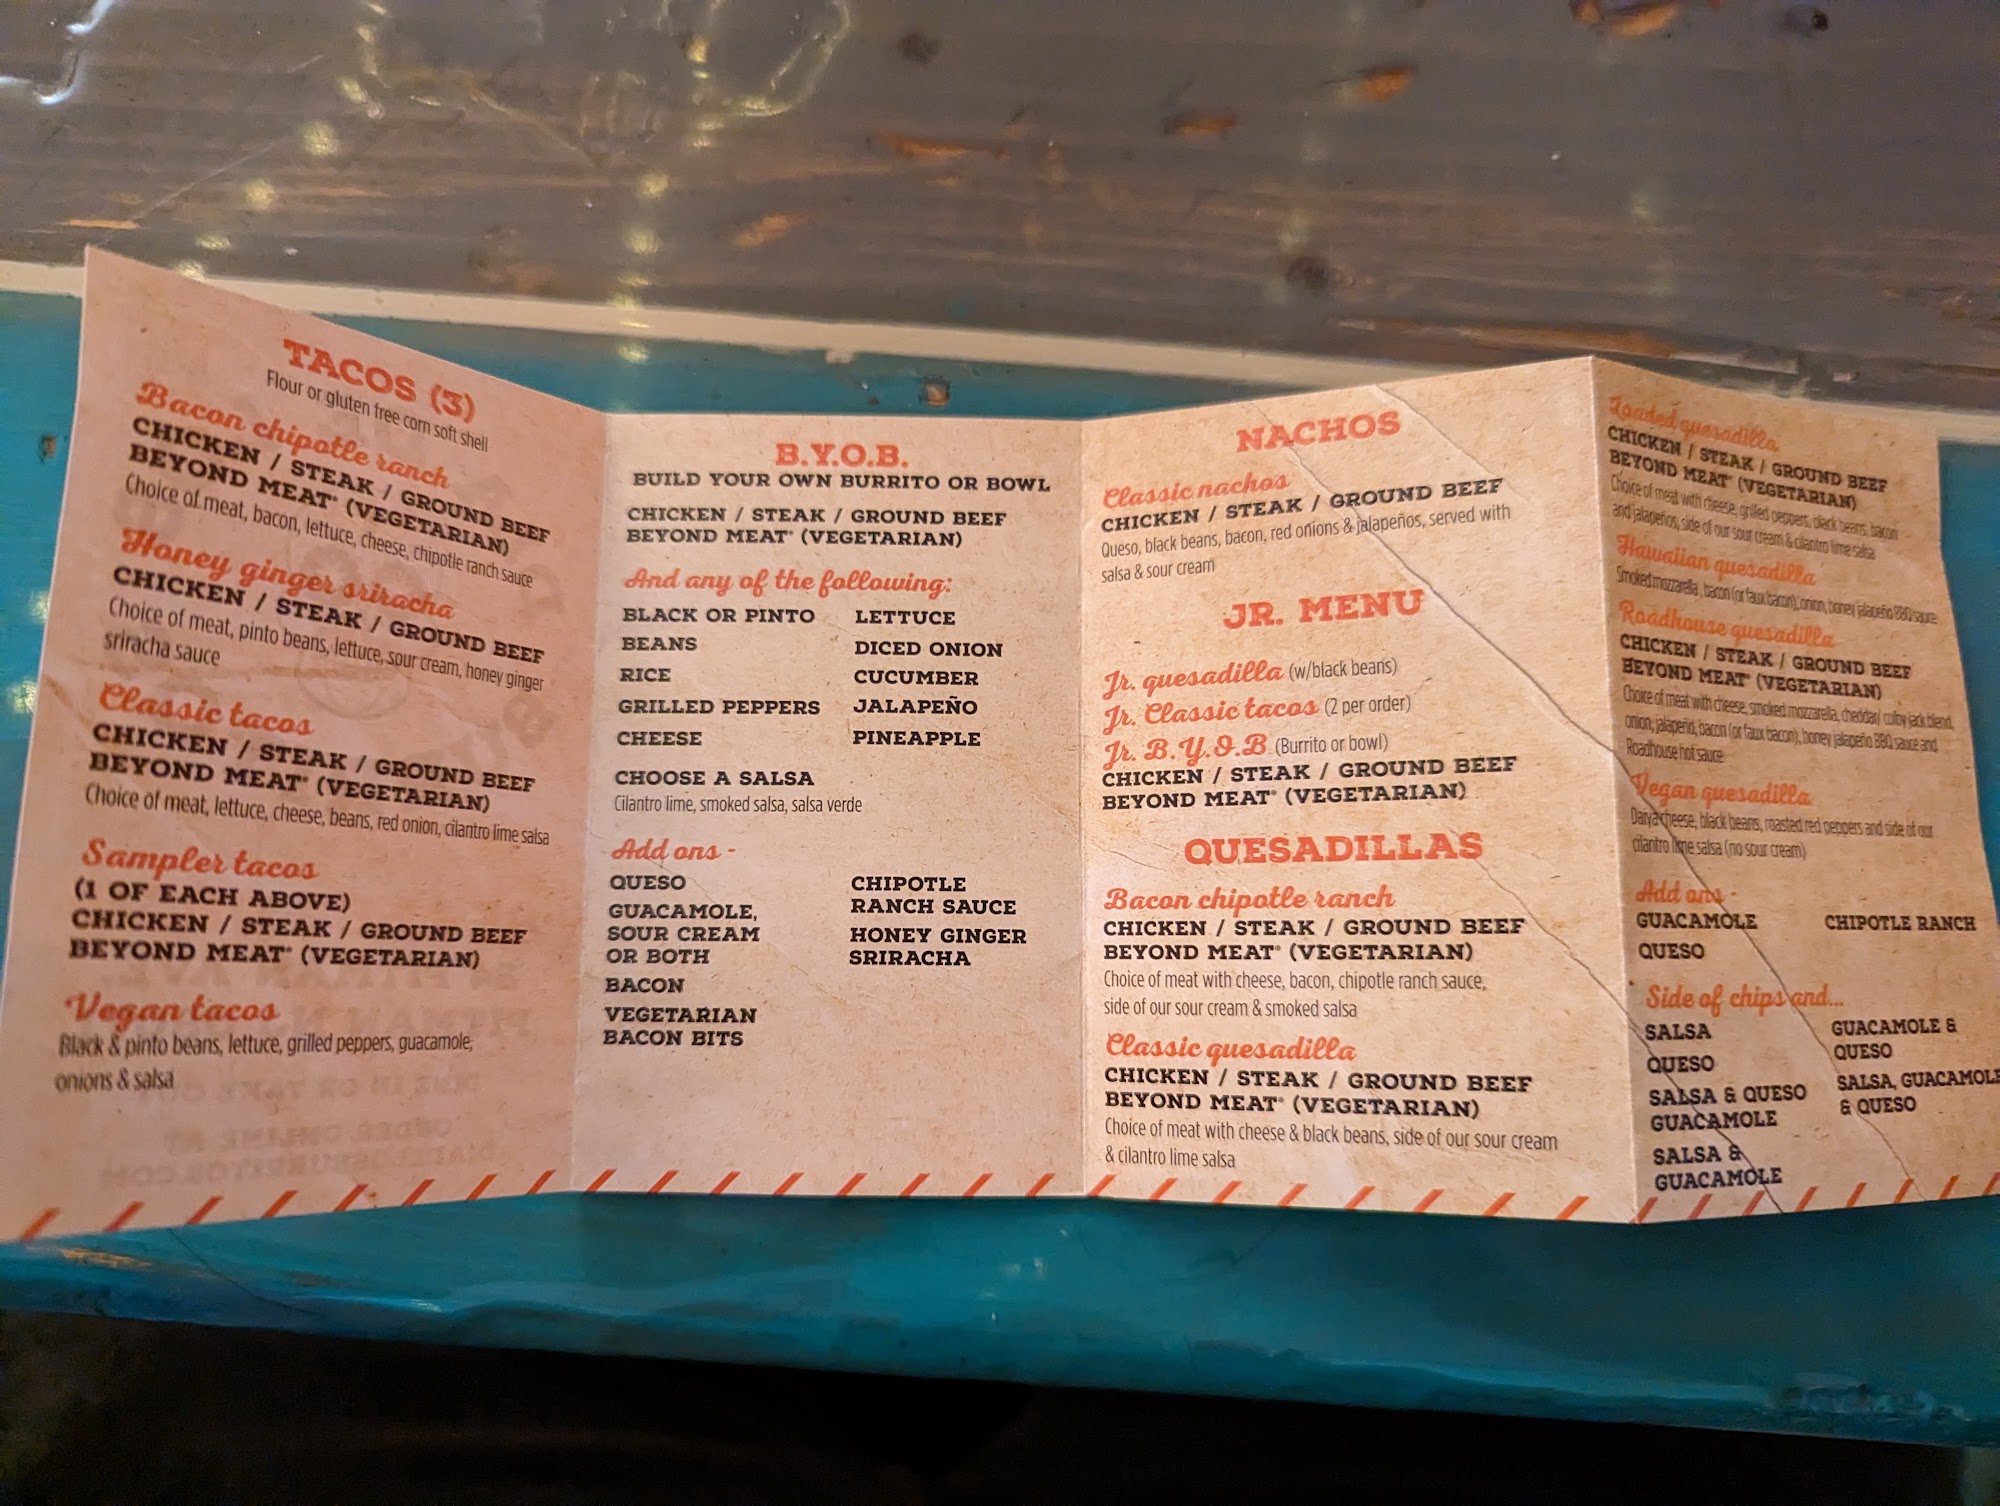 TACOS (3)
Flour or gluten free corn soft shell
Bacon chipotle ranch
CHICKEN / STEAK / GROUND BEEF
BEYOND MEAT® (VEGETARIAN)
Choice of meat, bacon, lettuce, cheese, chipotle ranch sauce
Honey ginger sriracha
CHICKEN / STEAK / GROUND BEEF
Choice of meat, pinto beans, lettuce, sour cream, honey ginger
sriracha sauce
Classic tacos
CHICKEN / STEAK / GROUND BEEF
BEYOND MEAT® (VEGETARIAN)
Choice of meat, lettuce, cheese, beans, red onion, cilantro lime salsa
Sampler tacos
(1 OF EACH ABOVE)
CHICKEN / STEAK / GROUND BEEF
BEYOND MEAT® (VEGETARIAN)
Vegan tacos
Black & pinto beans, lettuce, grilled peppers, guacamole,
onions & salsa
B.Y.O.B.
BUILD YOUR OWN BURRITO OR BOWL
CHICKEN / STEAK / GROUND BEEF
BEYOND MEAT® (VEGETARIAN)
And any of the following:
BLACK OR PINTO
BEANS
RICE
GRILLED PEPPERS
CHEESE
LETTUCE
DICED ONION
CUCUMBER
JALAPEÑO
PINEAPPLE
CHOOSE A SALSA
Cilantro lime, smoked salsa, salsa verde
Add ons -
QUESO
GUACAMOLE,
SOUR CREAM
OR BOTH
BACON
VEGETARIAN
BACON BITS
CHIPOTLE
RANCH SAUCE
HONEY GINGER
SRIRACHA
NACHOS
Classic nachos
CHICKEN / STEAK / GROUND BEEF
Queso, black beans, bacon, red onions & jalapeños, served with
salsa & sour cream
JR. MENU
Jr. quesadilla (w/black beans)
Jr. Classic tacos (2 per order)
Jr. B.Y.O.B (Burrito or bowl)
CHICKEN / STEAK / GROUND BEEF
BEYOND MEAT® (VEGETARIAN)
QUESADILLAS
Bacon chipotle ranch
CHICKEN / STEAK / GROUND BEEF
BEYOND MEAT® (VEGETARIAN)
Choice of meat with cheese, bacon, chipotle ranch sauce,
side of our sour cream & smoked salsa
Classic quesadilla
CHICKEN / STEAK / GROUND BEEF
BEYOND MEAT® (VEGETARIAN)
Choice of meat with cheese & black beans, side of our sour cream
& cilantro lime salsa
Loaded quesadilla
CHICKEN / STEAK / GROUND BEEF
BEYOND MEAT® (VEGETARIAN)
Choice of meat with cheese, grilled peppers, black beans, bacon
and jalapeños, side of our sour cream & cilantro lime salsa
Hawaiian quesadilla
Smoked mozzarella, bacon (or faux bacon), onion, honey jalapeño BBQ sauce
Roadhouse quesadilla
CHICKEN / STEAK / GROUND BEEF
BEYOND MEAT® (VEGETARIAN)
Choice of meat with cheese, smoked mozzarella, cheddar/ colby jack blend,
onion, jalapeño, bacon (or faux bacon), honey jalapeño BBQ sauce and
Roadhouse hot sauce
Vegan quesadilla
Daiya cheese, black beans, roasted red peppers and side of our
cilantro lime salsa (no sour cream)
Add ons -
GUACAMOLE
QUESO
CHIPOTLE RANCH
Side of chips and...
SALSA
QUESO
SALSA & QUESO
GUACAMOLE
SALSA &
GUACAMOLE
GUACAMOLE &
QUESO
SALSA, GUACAMOLE
& QUESO